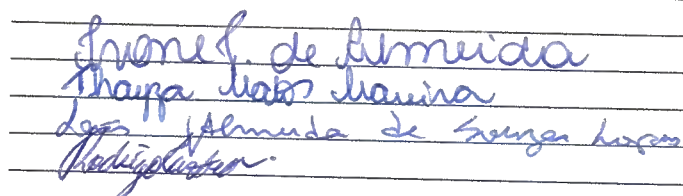 Ivone J. de Almeida
Thayza Matos Moreira
Almeida de Souza Lopes
Rodrigo